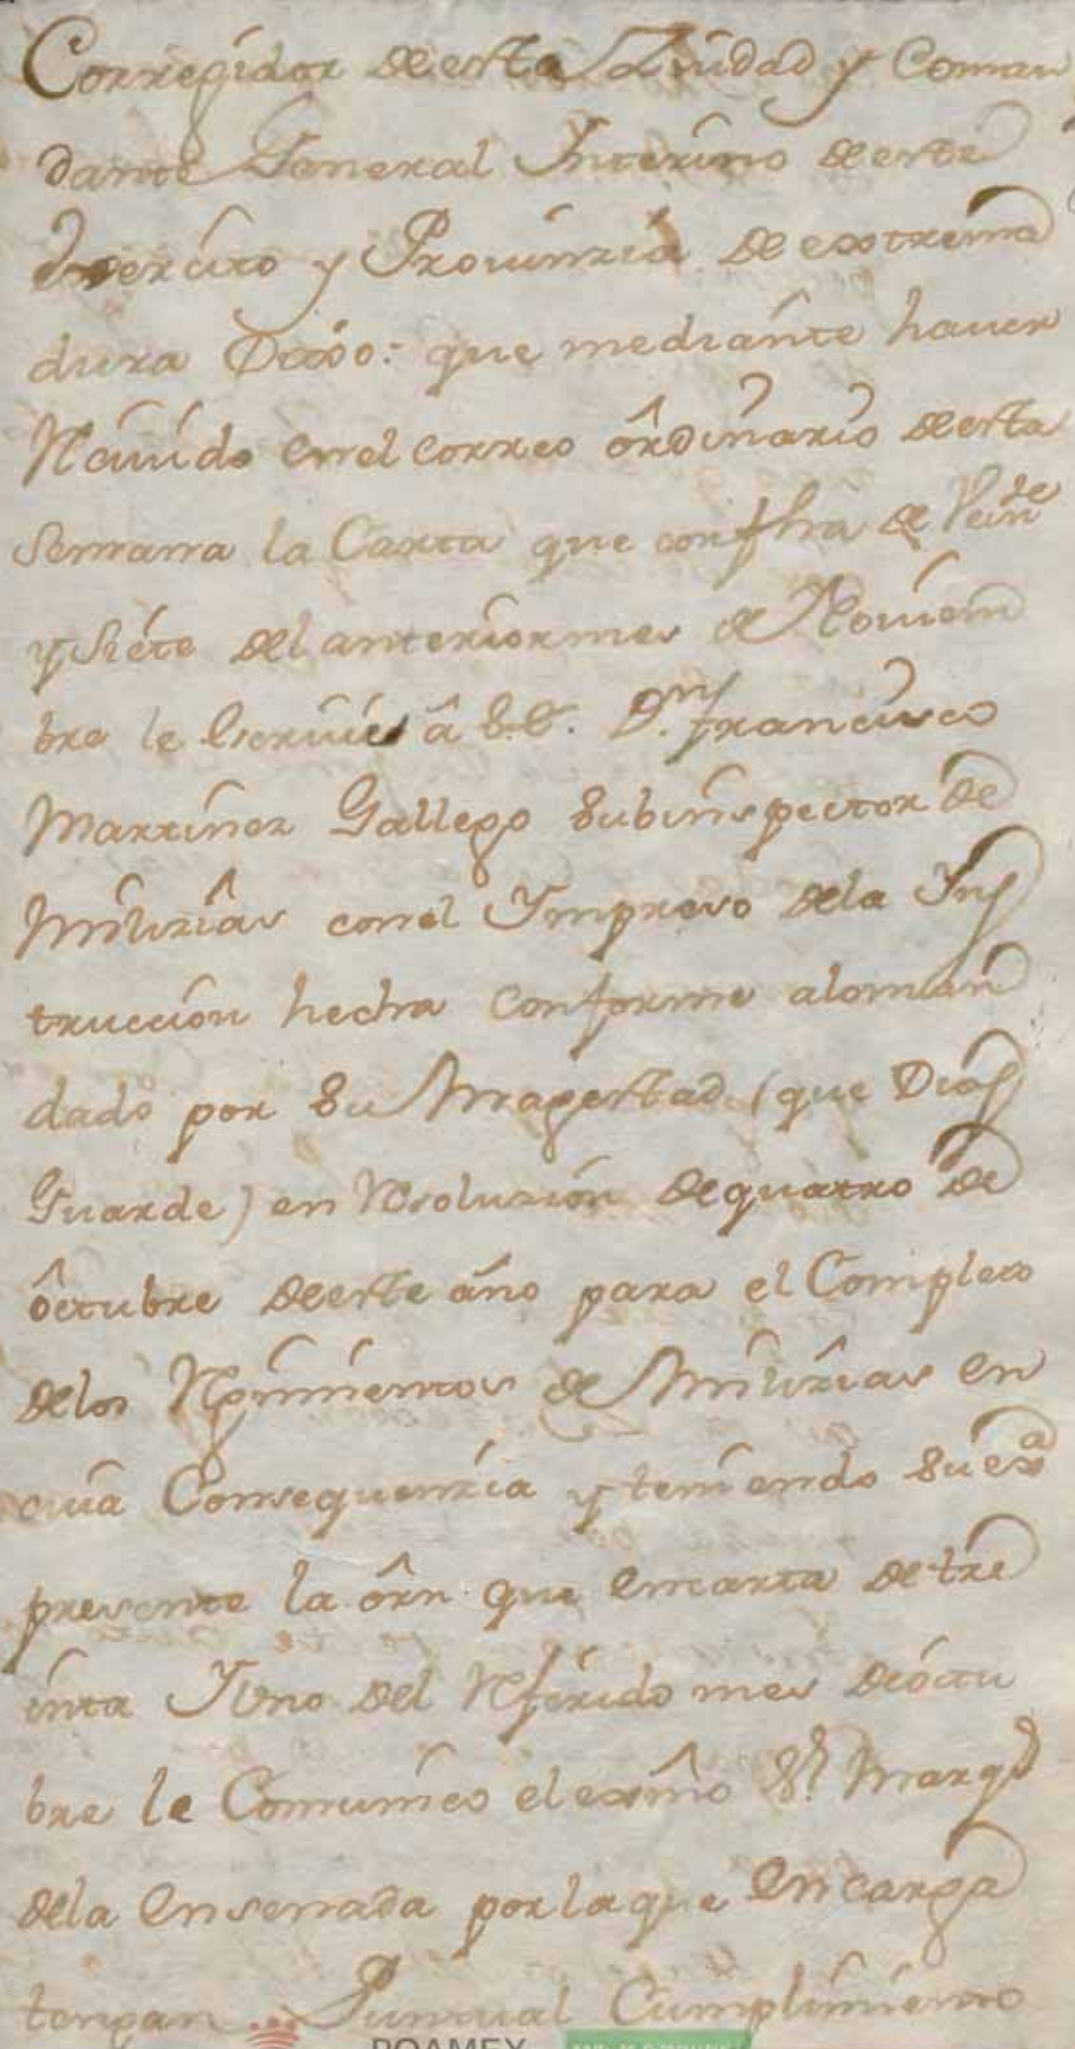 Corregidor de esta Ziudad y Coman
dante General Ynterino de este
Exercito y Provinzia de extrema
dura Dixo: que mediante haver
Rcivido en el correo ôrdinario de esta
semana la Carta que con fha de Veinte
y Siete del anterior mes de Noviem
bre le Escrive â S.E. Dn. francisco
Martinez Gallego Subinspector de
Milizias con el Ympreso de la Yns
truccion hecha conforme a lo man
dado por Su Magestad (que Dios
Guarde) en Rsoluzion de quatro de
ôctubre de este año para el Completo
de los Rgimientos de Milizias en
cuia Consequenzia y teniendo Su exa
presente la ôrn. que en carta de tre
inta Y Uno del Rferido mes de octu
bre le Comunico el exmô Sr. Marqs
de la Ensenada por la que Encarga
tengan Puntual Cumplimiento
ROAMEX